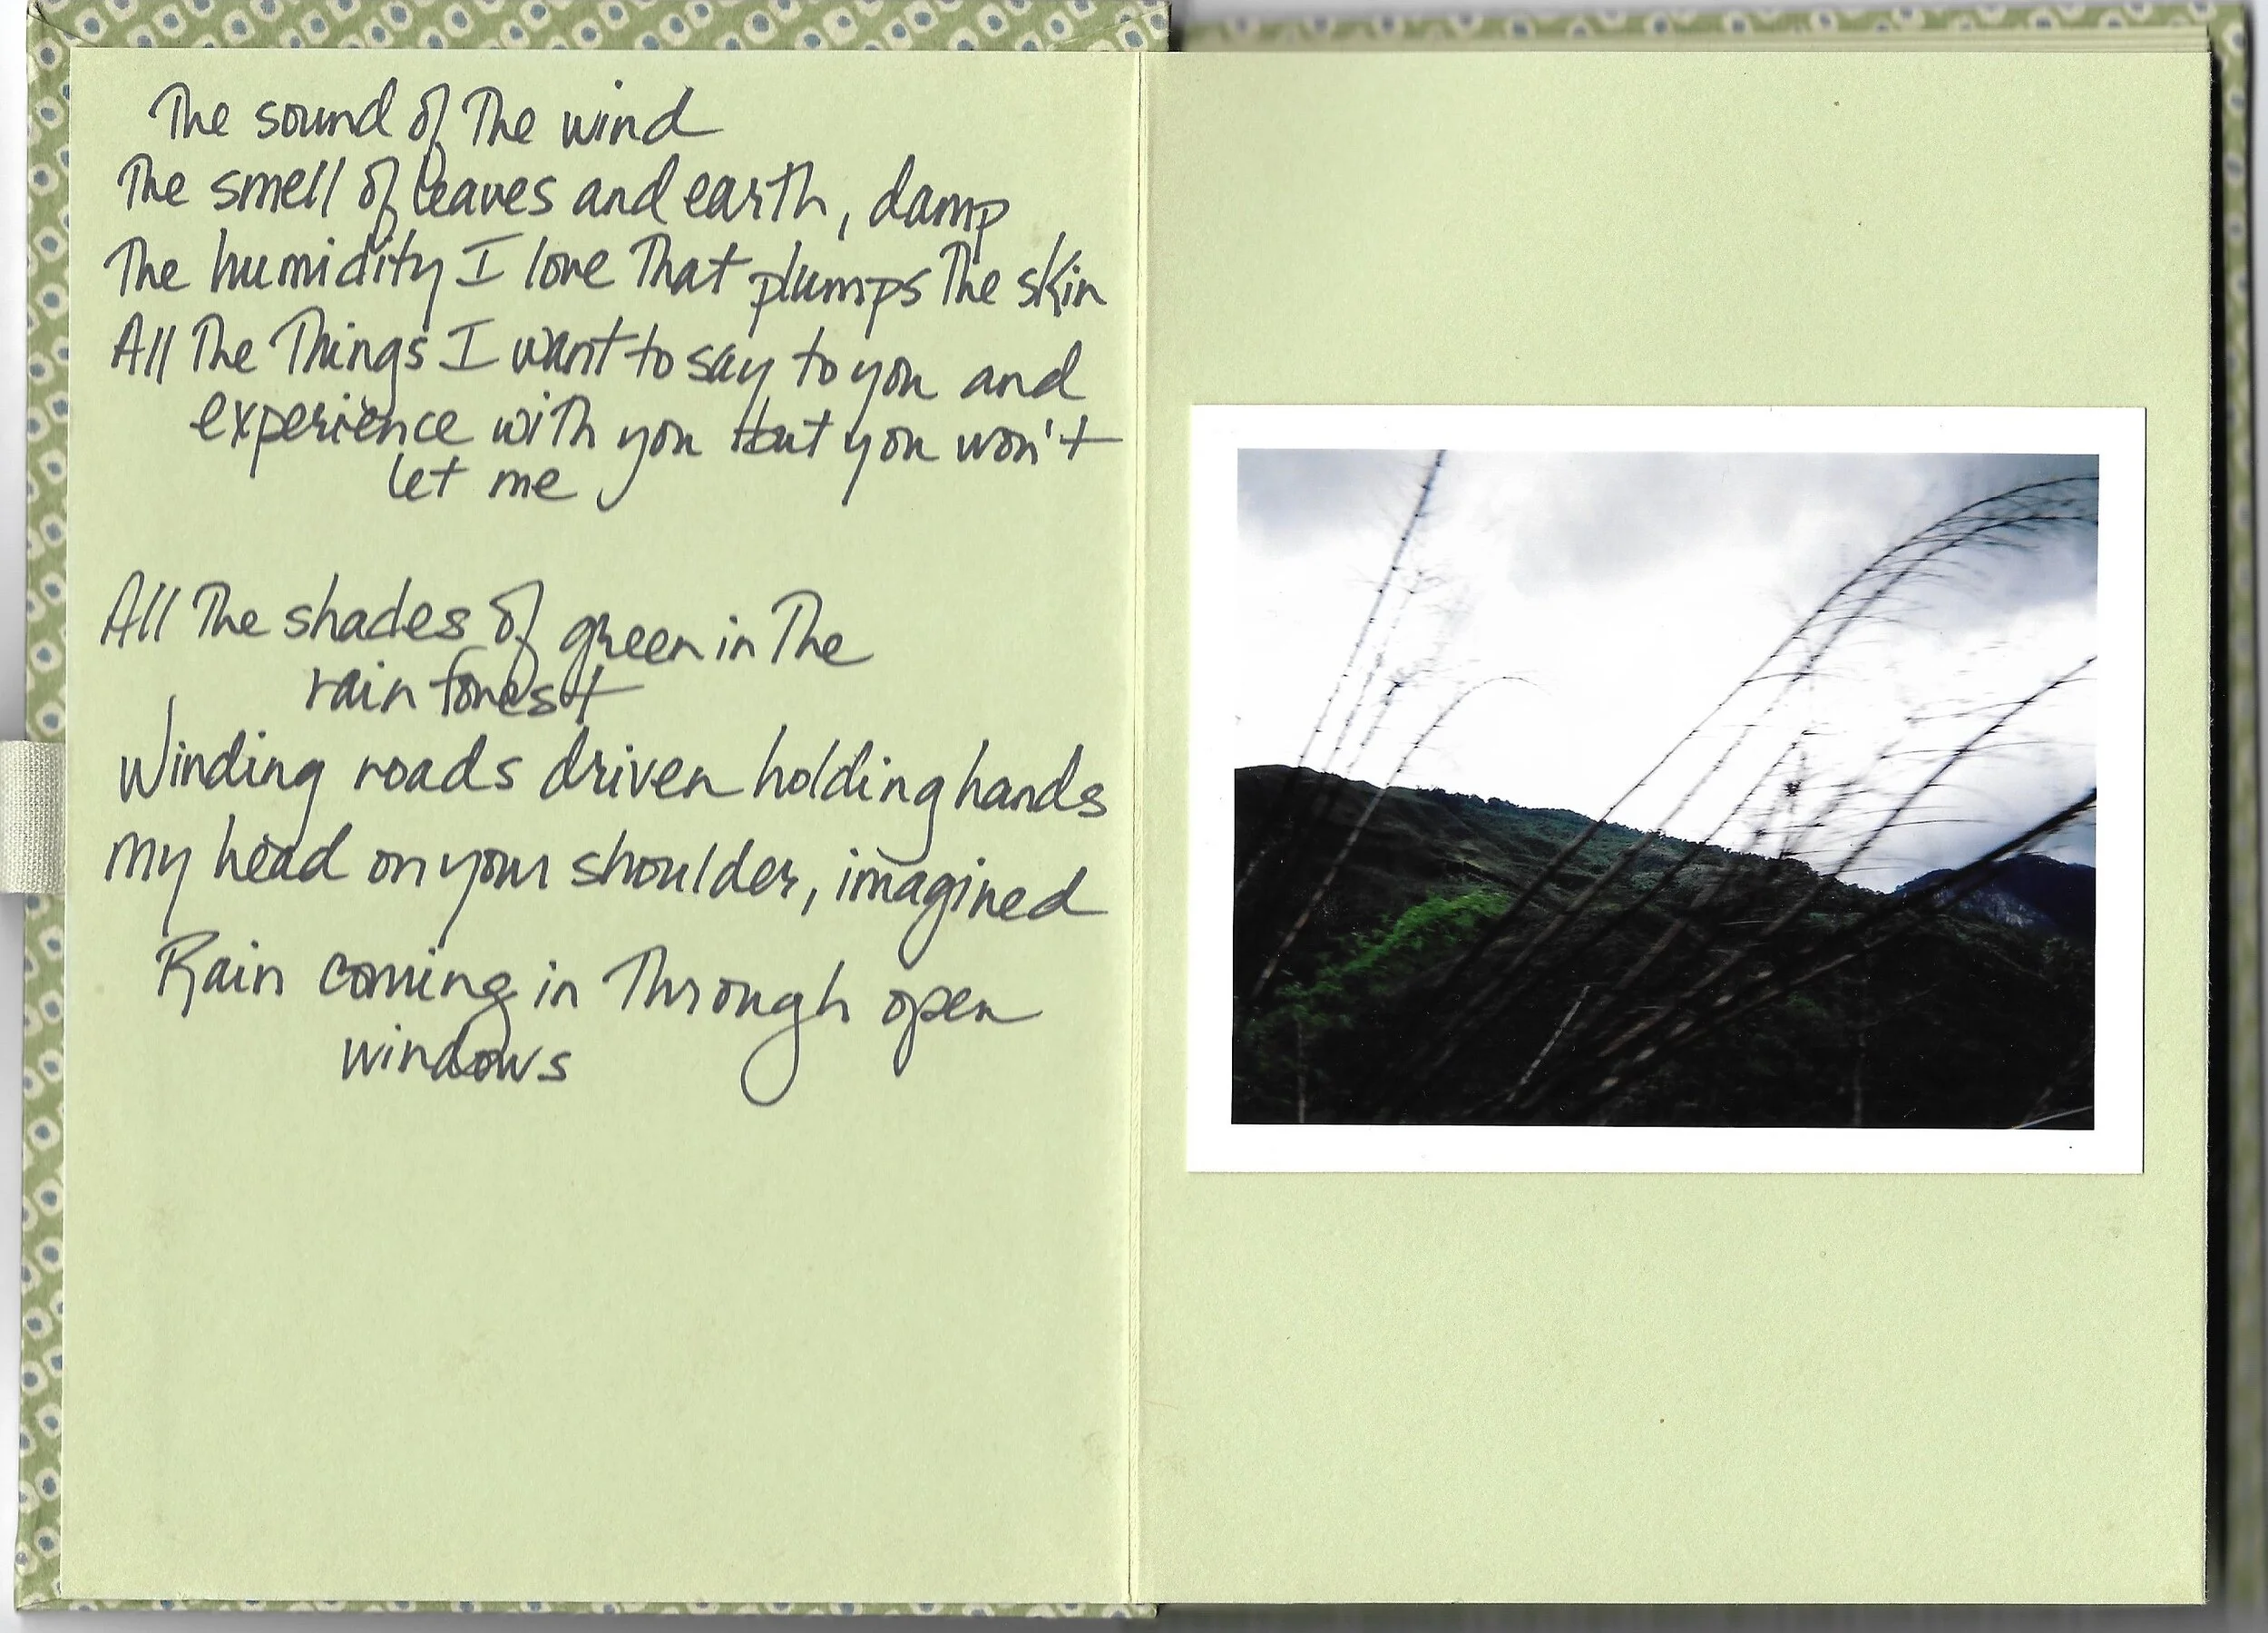 The sound of The wind
The smell of leaves and earth, damp
The humidity I love That plumps The skin
All The Things I want to say to you and
experience with you but you won't
let me
All The shades of green in The
rain forest
Winding roads driven holding hands
my head on your shoulder, imagined
Rain coming in Through open
windows